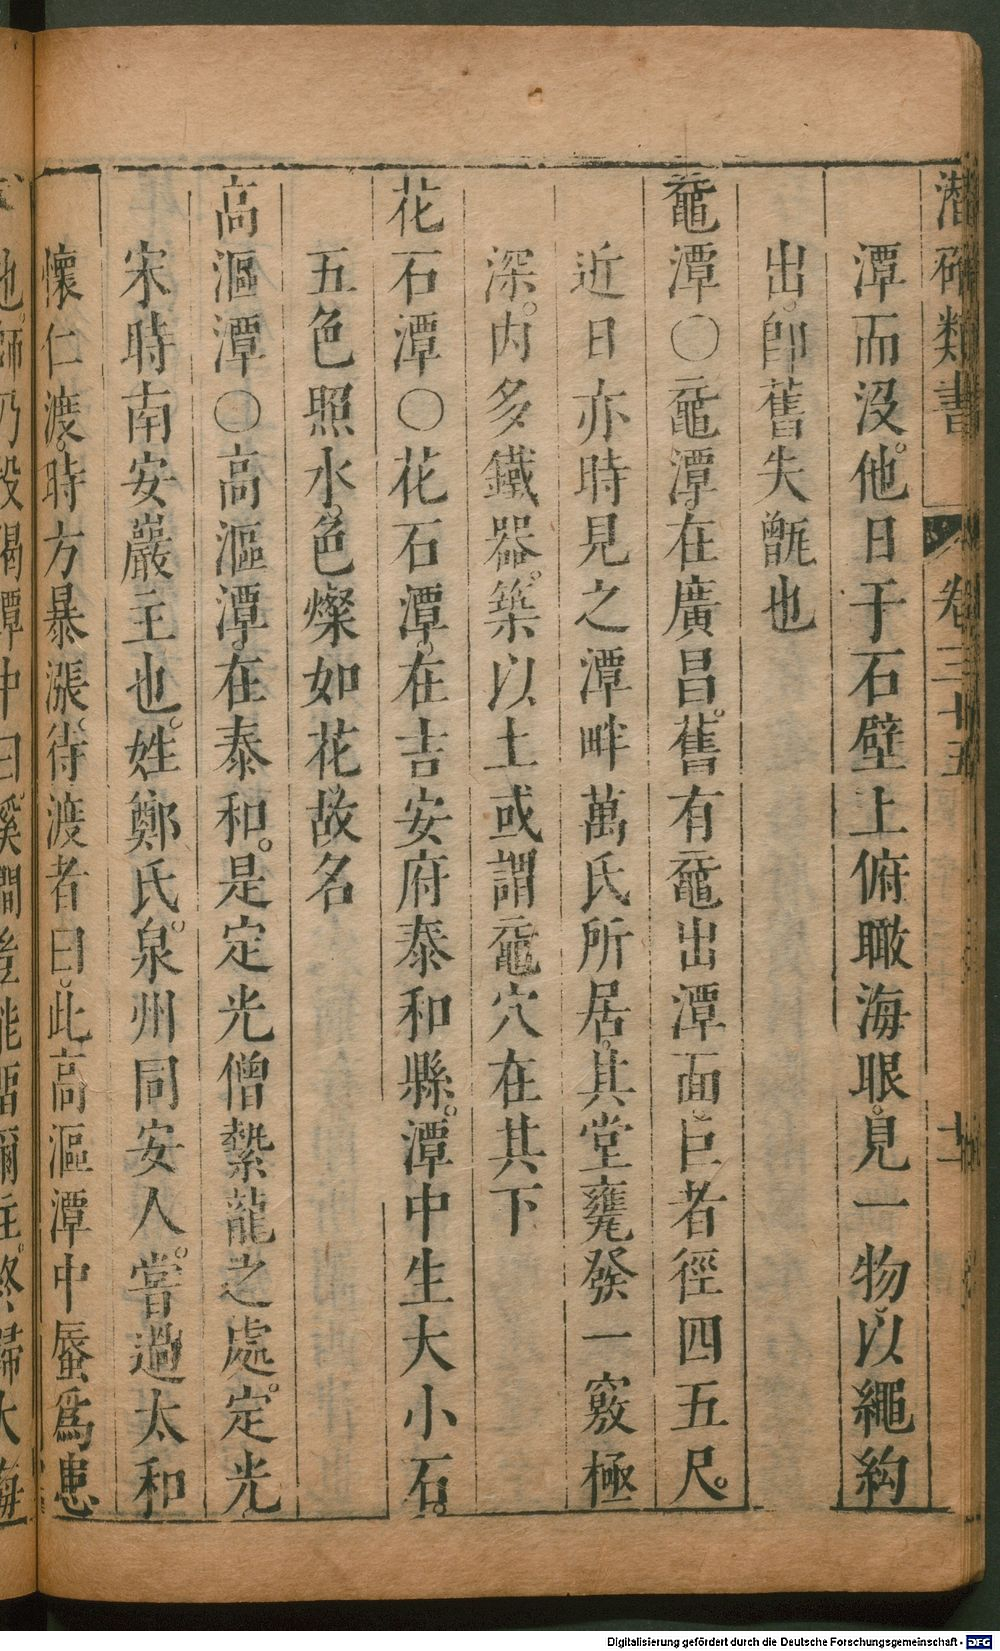 潛確類書
卷三十五
十一
潭而沒。他日于石壁上俯瞰海眼。見一物。以繩鉤
出。卽舊失甑也
黿潭〇黿潭。在廣昌。舊有黿出潭面。巨者徑四五尺。
近日亦時見之。潭畔萬氏所居。其堂甕發一竅極
深。内多鐵器。築以土。或謂黿穴在其下
花石潭〇花石潭。在吉安府泰和縣。潭中生大小石。
五色照水。色燦如花。故名
高漚潭〇高漚潭。在泰和。是定光僧縶龍之處。定光
宋時南安巖主也。姓鄭氏。泉州同安人。嘗過太和
懷仁渡。時方暴漲。待渡者曰。此高漚潭中蜃爲患
也。師乃投偈潭中曰。溪澗豈能留彌住。終歸大海
Digitalisierung gefördert durch die Deutsche Forschungsgemeinschaft - DFG